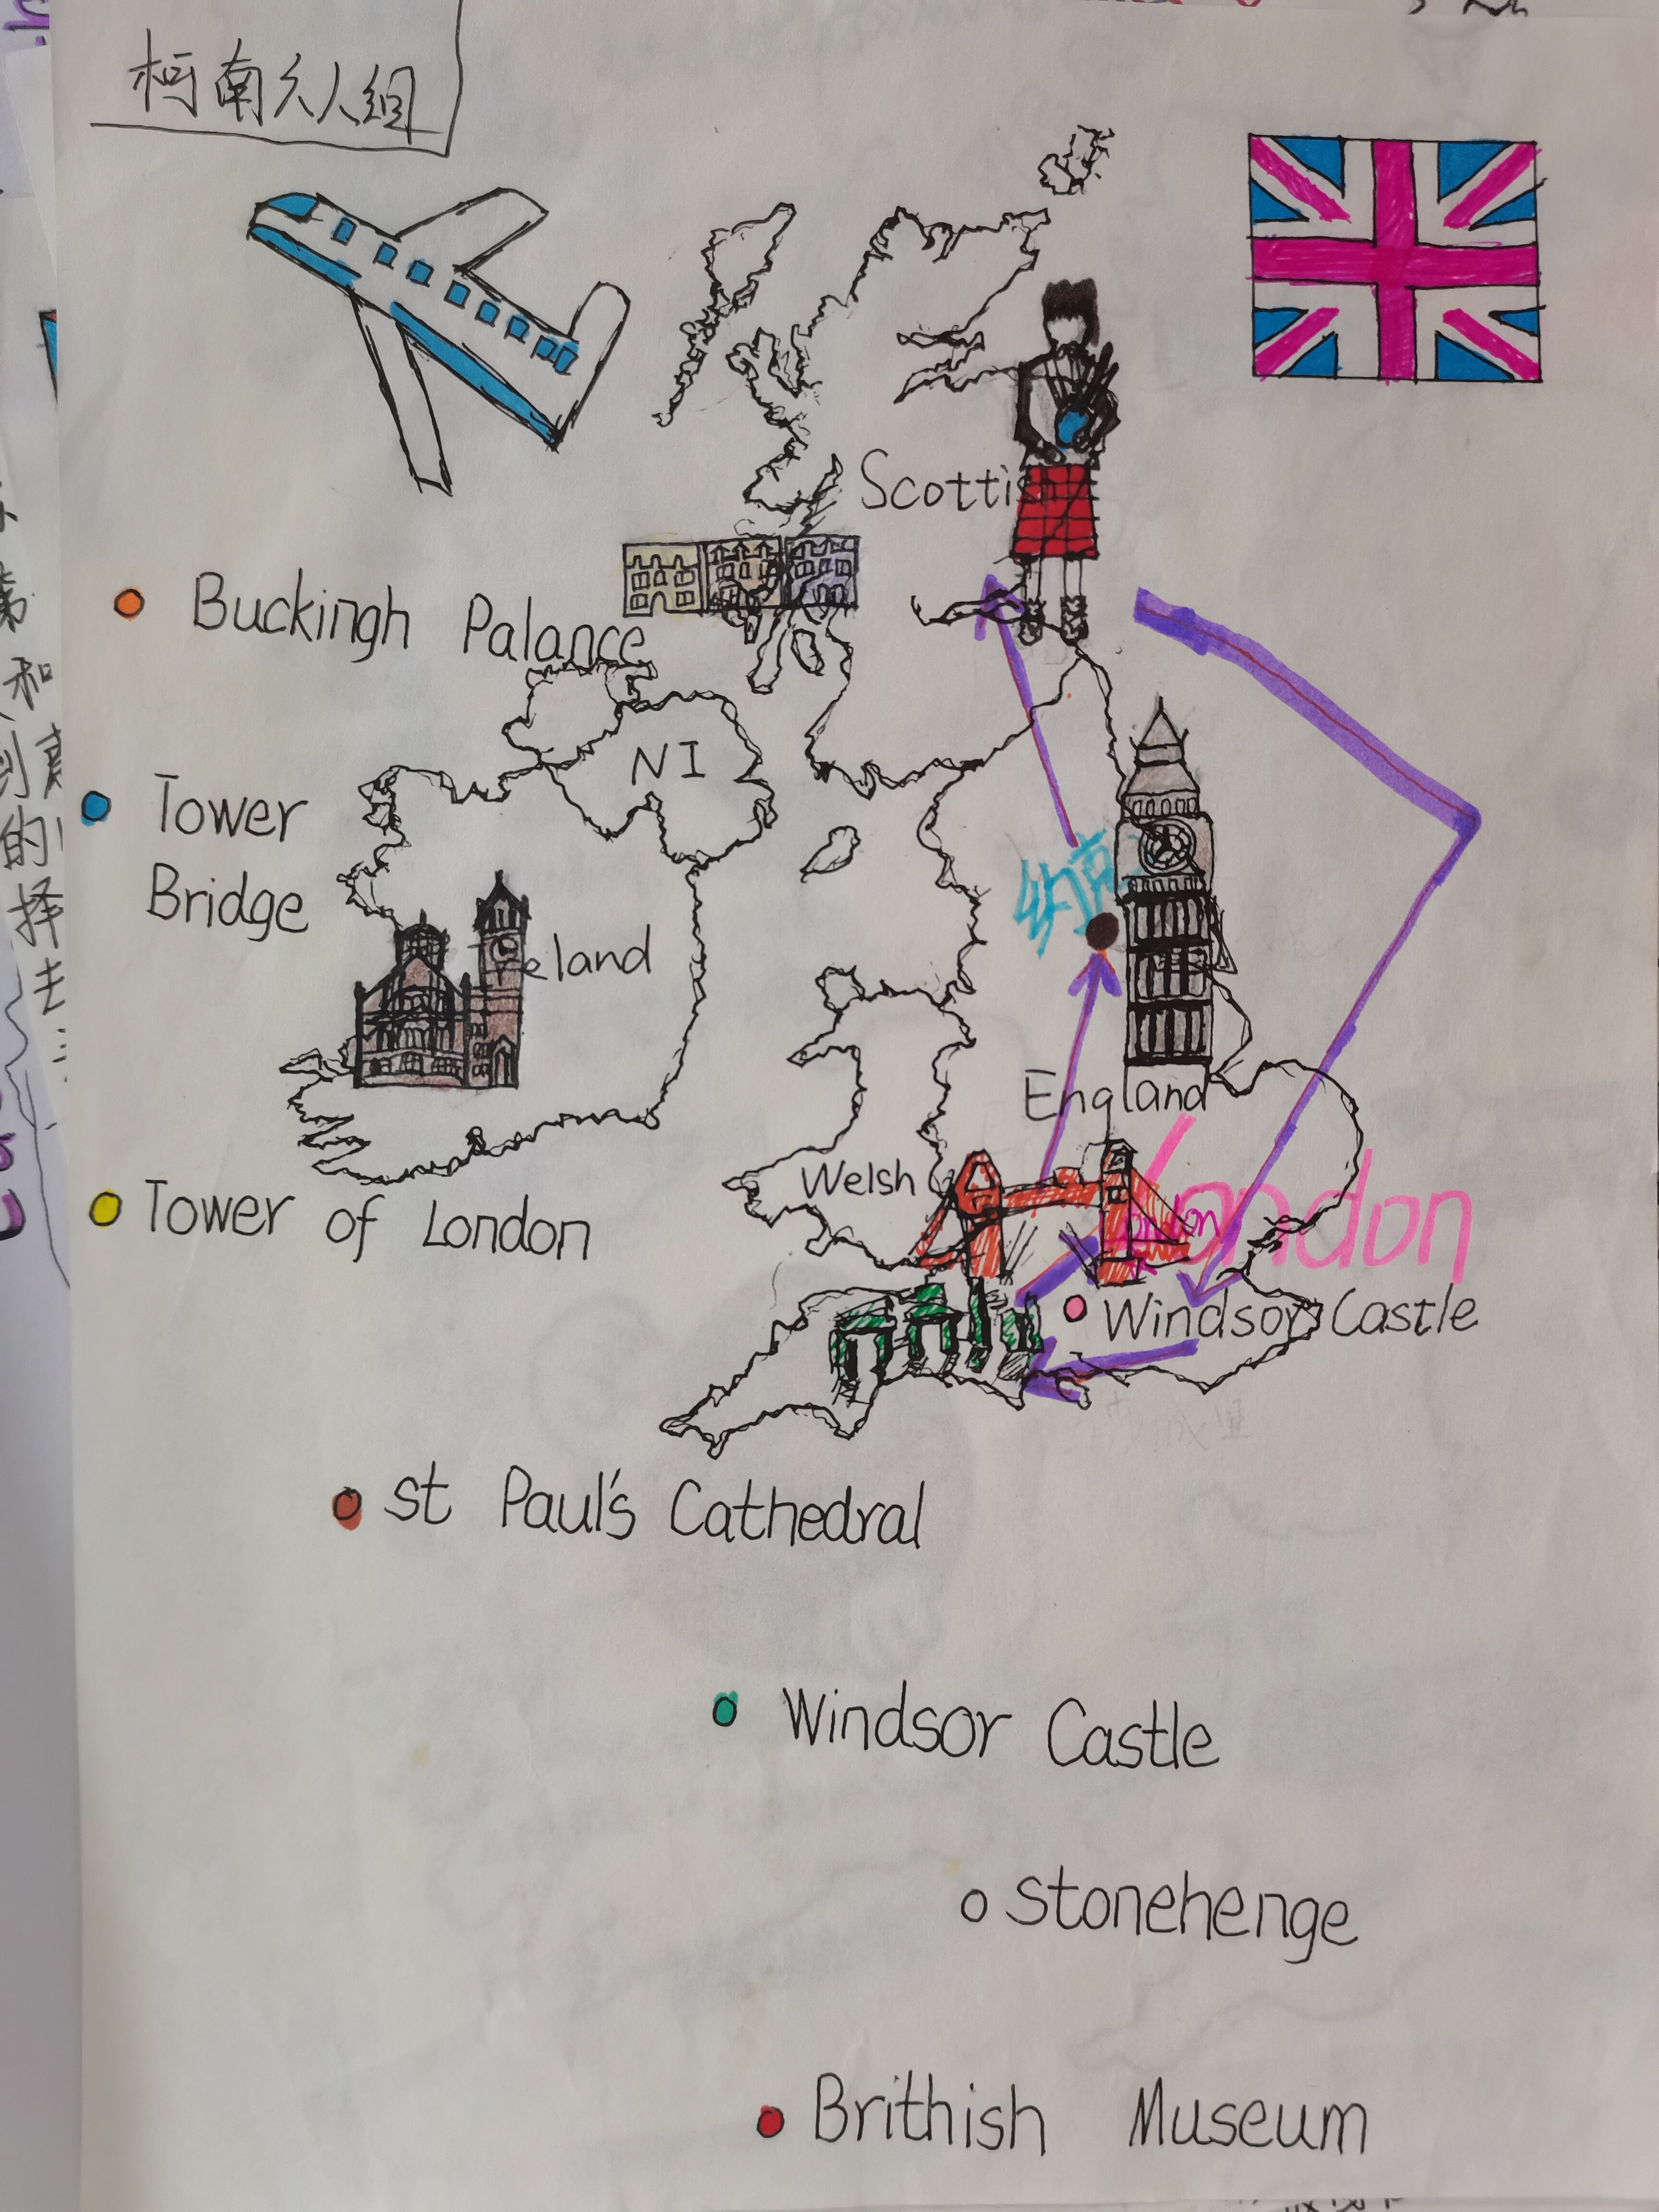 柯南六人组
Scotti
Buckingh Palance
NI
Tower
Bridge
纽克
eland
England
Welsh
Tower of London
London
Windsor Castle
st Paul's Cathedral
Windsor Castle
stonehenge
Brithish Museum